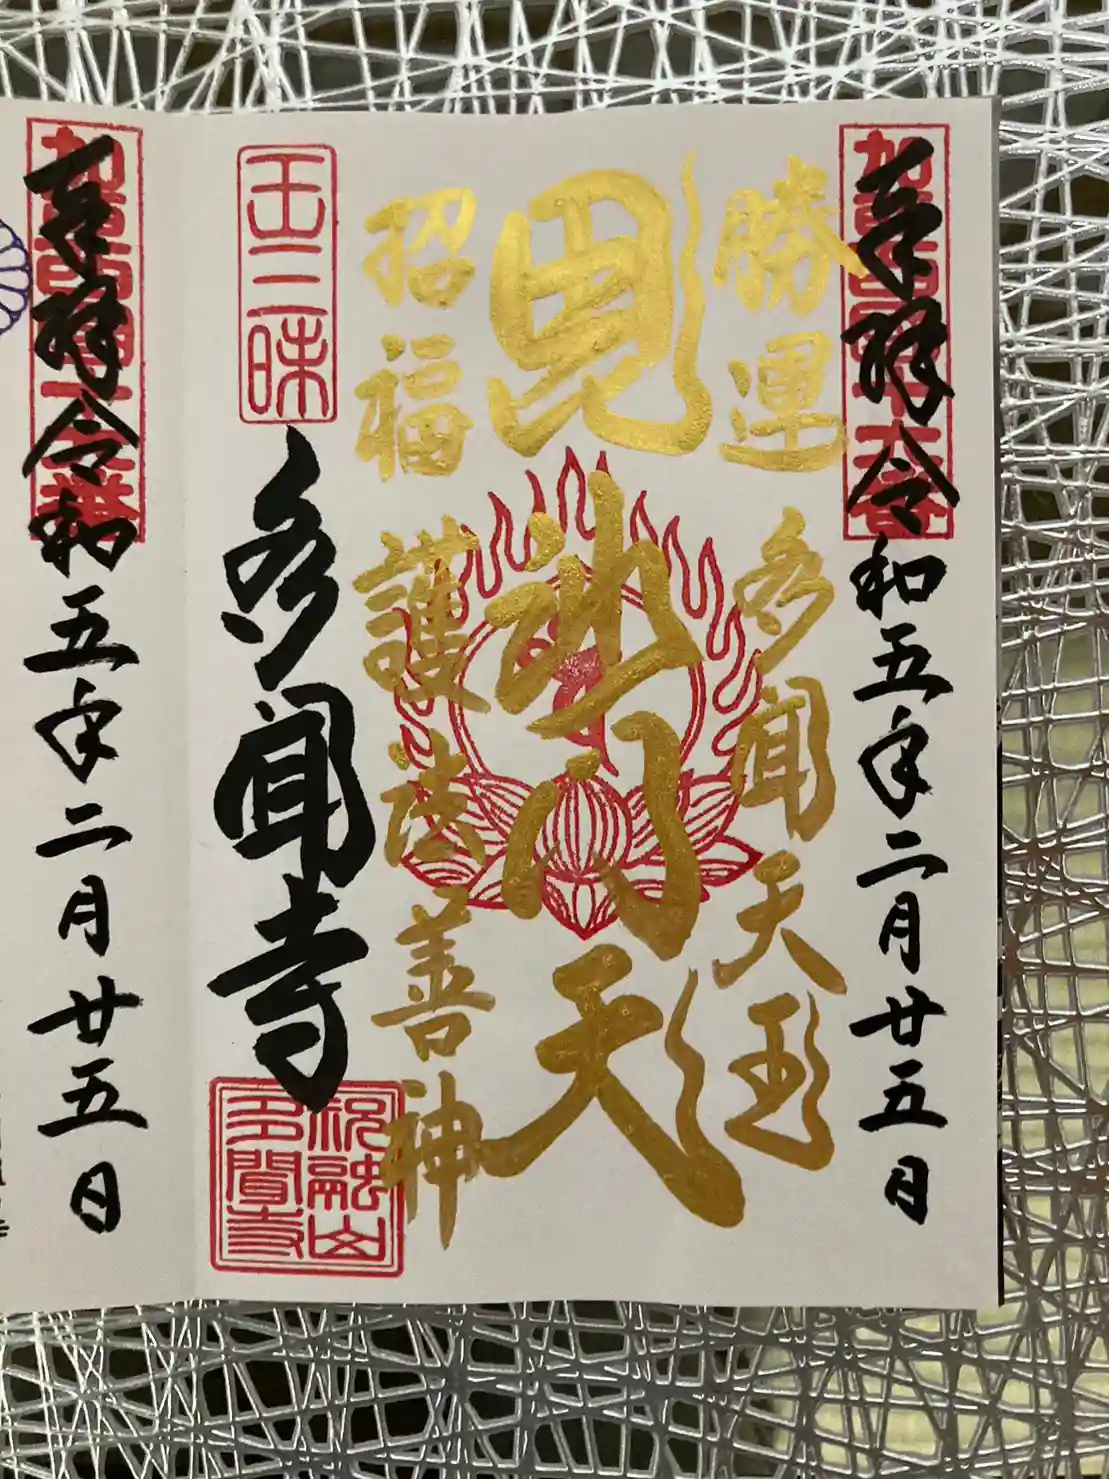 奉拝 令和五年二月廿五日
勝運 多聞天王
毘沙門天
招福 護法善神
王三昧
多聞寺
祝融山
多聞寺
奉拝 令和五年二月廿五日